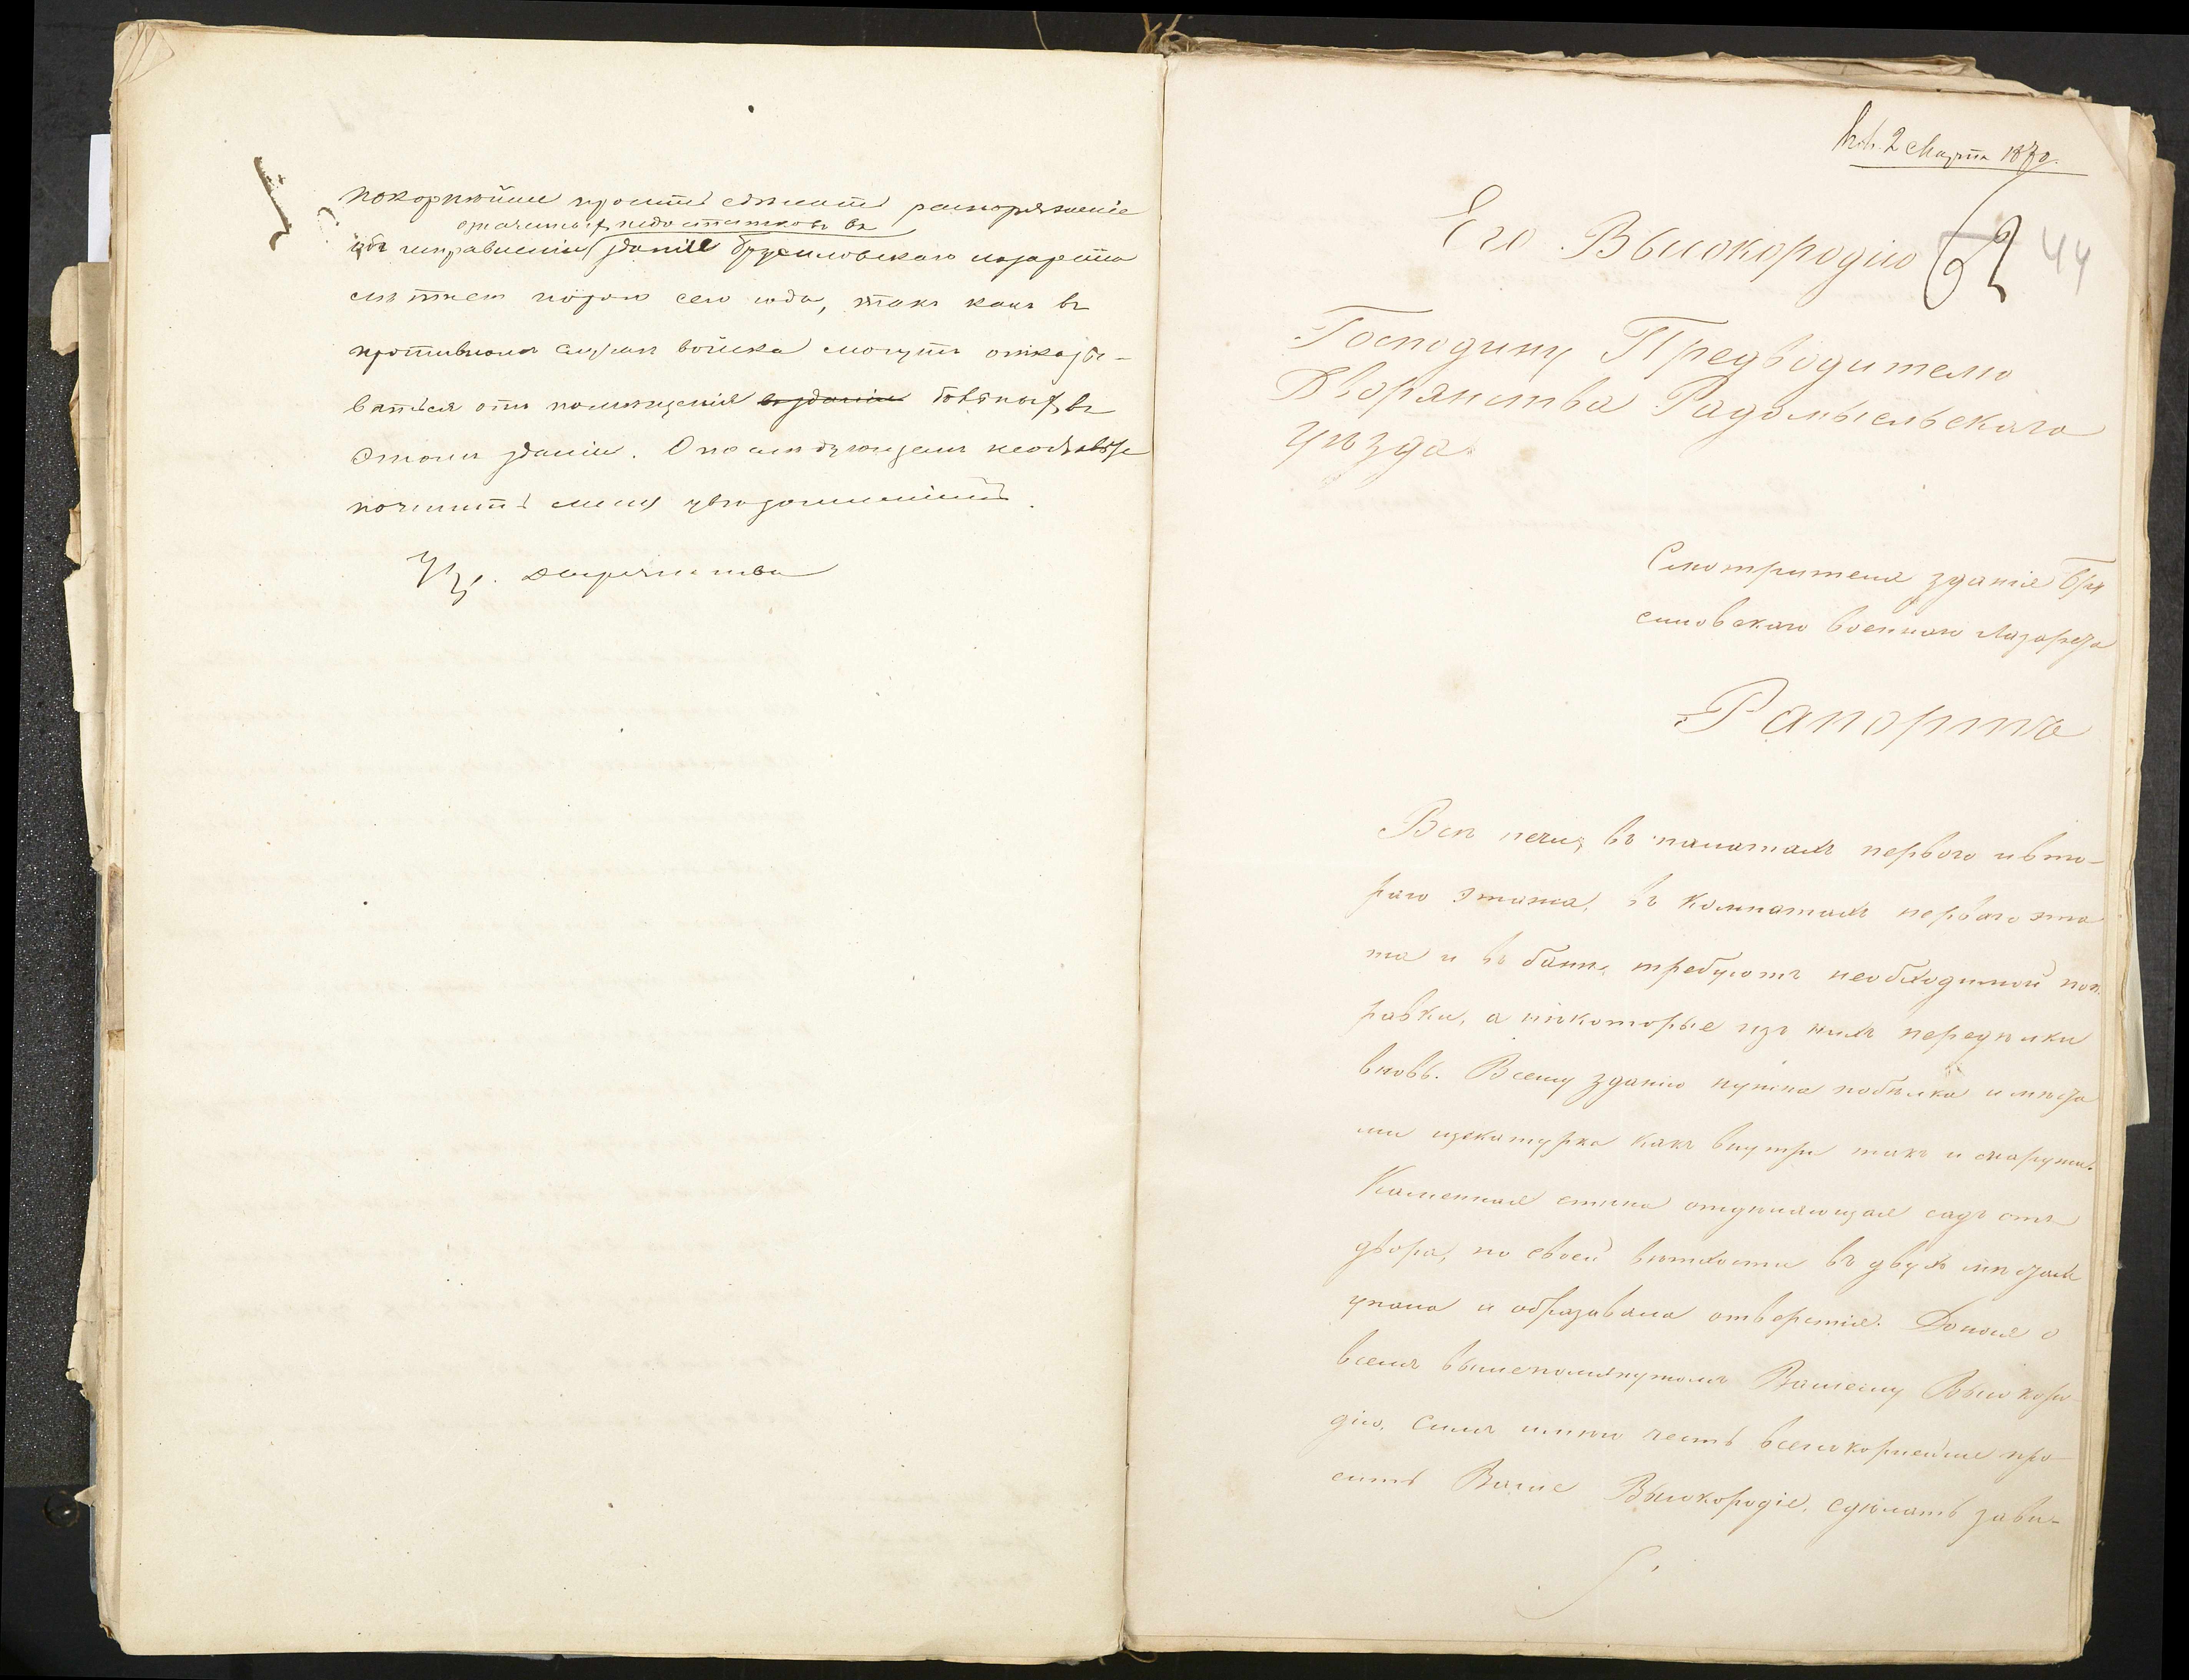 покорнѣйше просить сдѣлать распоряженіе
означенныхъ недостатковъ въ
объ исправленіи зданіе Брусиловскаго лазарета
лѣтнею порою сего года, такъ какъ въ
противномъ случаѣ войска могутъ отказы-
ваться отъ помѣщенія въ зданіи больныхъ въ
этомъ зданіи. О послѣдующемъ неоставьте
почтить меня увѣдомленіемъ.
2 Марта 1870.
Его Высокородію
62 44
Господину Предводителю
Дворянства Радомысльскаго
уѣзда
Смотрителя зданія Бру
силовскаго военнаго Лазарета
Рапортъ
Всѣ печи, въ палатахъ перваго и вто-
раго этажа, въ комнатахъ перваго эта
жа и въ банѣ, требуютъ необходимой поп-
равки, а нѣкоторые изъ нихъ передѣлки
вновь. Всему зданію нужна побѣлка и мѣста
ми щекатурка какъ внутри такъ и снаружи.
Каменная стѣна отдѣляющая садъ отъ
двора, по своей вѣтхости въ двухъ мѣстахъ
упала и образовала отверстія. Донося о
всемъ вышепомянутомъ Вашему Высокоро-
дію, симъ имѣю честь всепокорнейше про-
сить Ваше Высокородіе, сдѣлать зави-